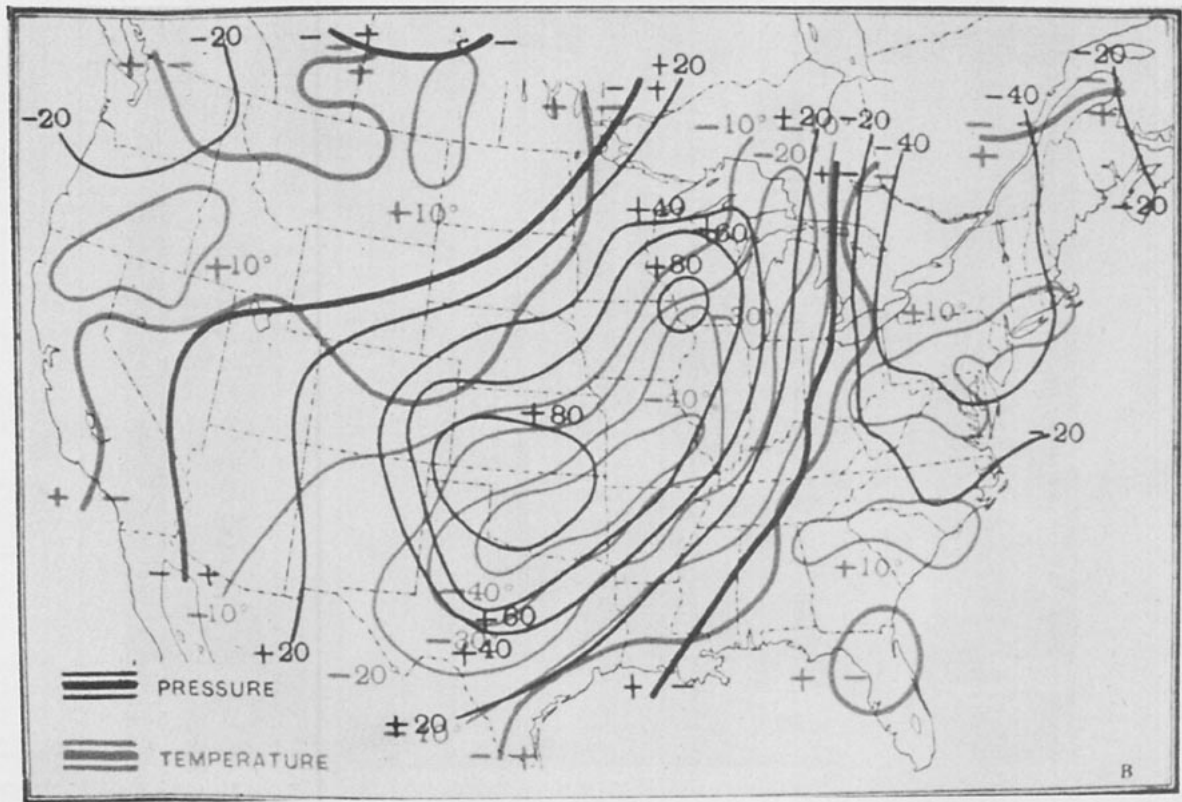 -20
- +
-
+ -
+
-20
+20
- +
+ -
-10°
+20
-20
-20
-40
+ -
-40
-20
-
+
-
+
-20
+10°
+40
+60
+80
+10°
-30°
+10°
-40°
+80
-20
+ -
- +
-10°
+10°
-40°
+60
-30°
+40
+20
-20°
+ -
+ -
+20
-10°
- +
PRESSURE
TEMPERATURE
B